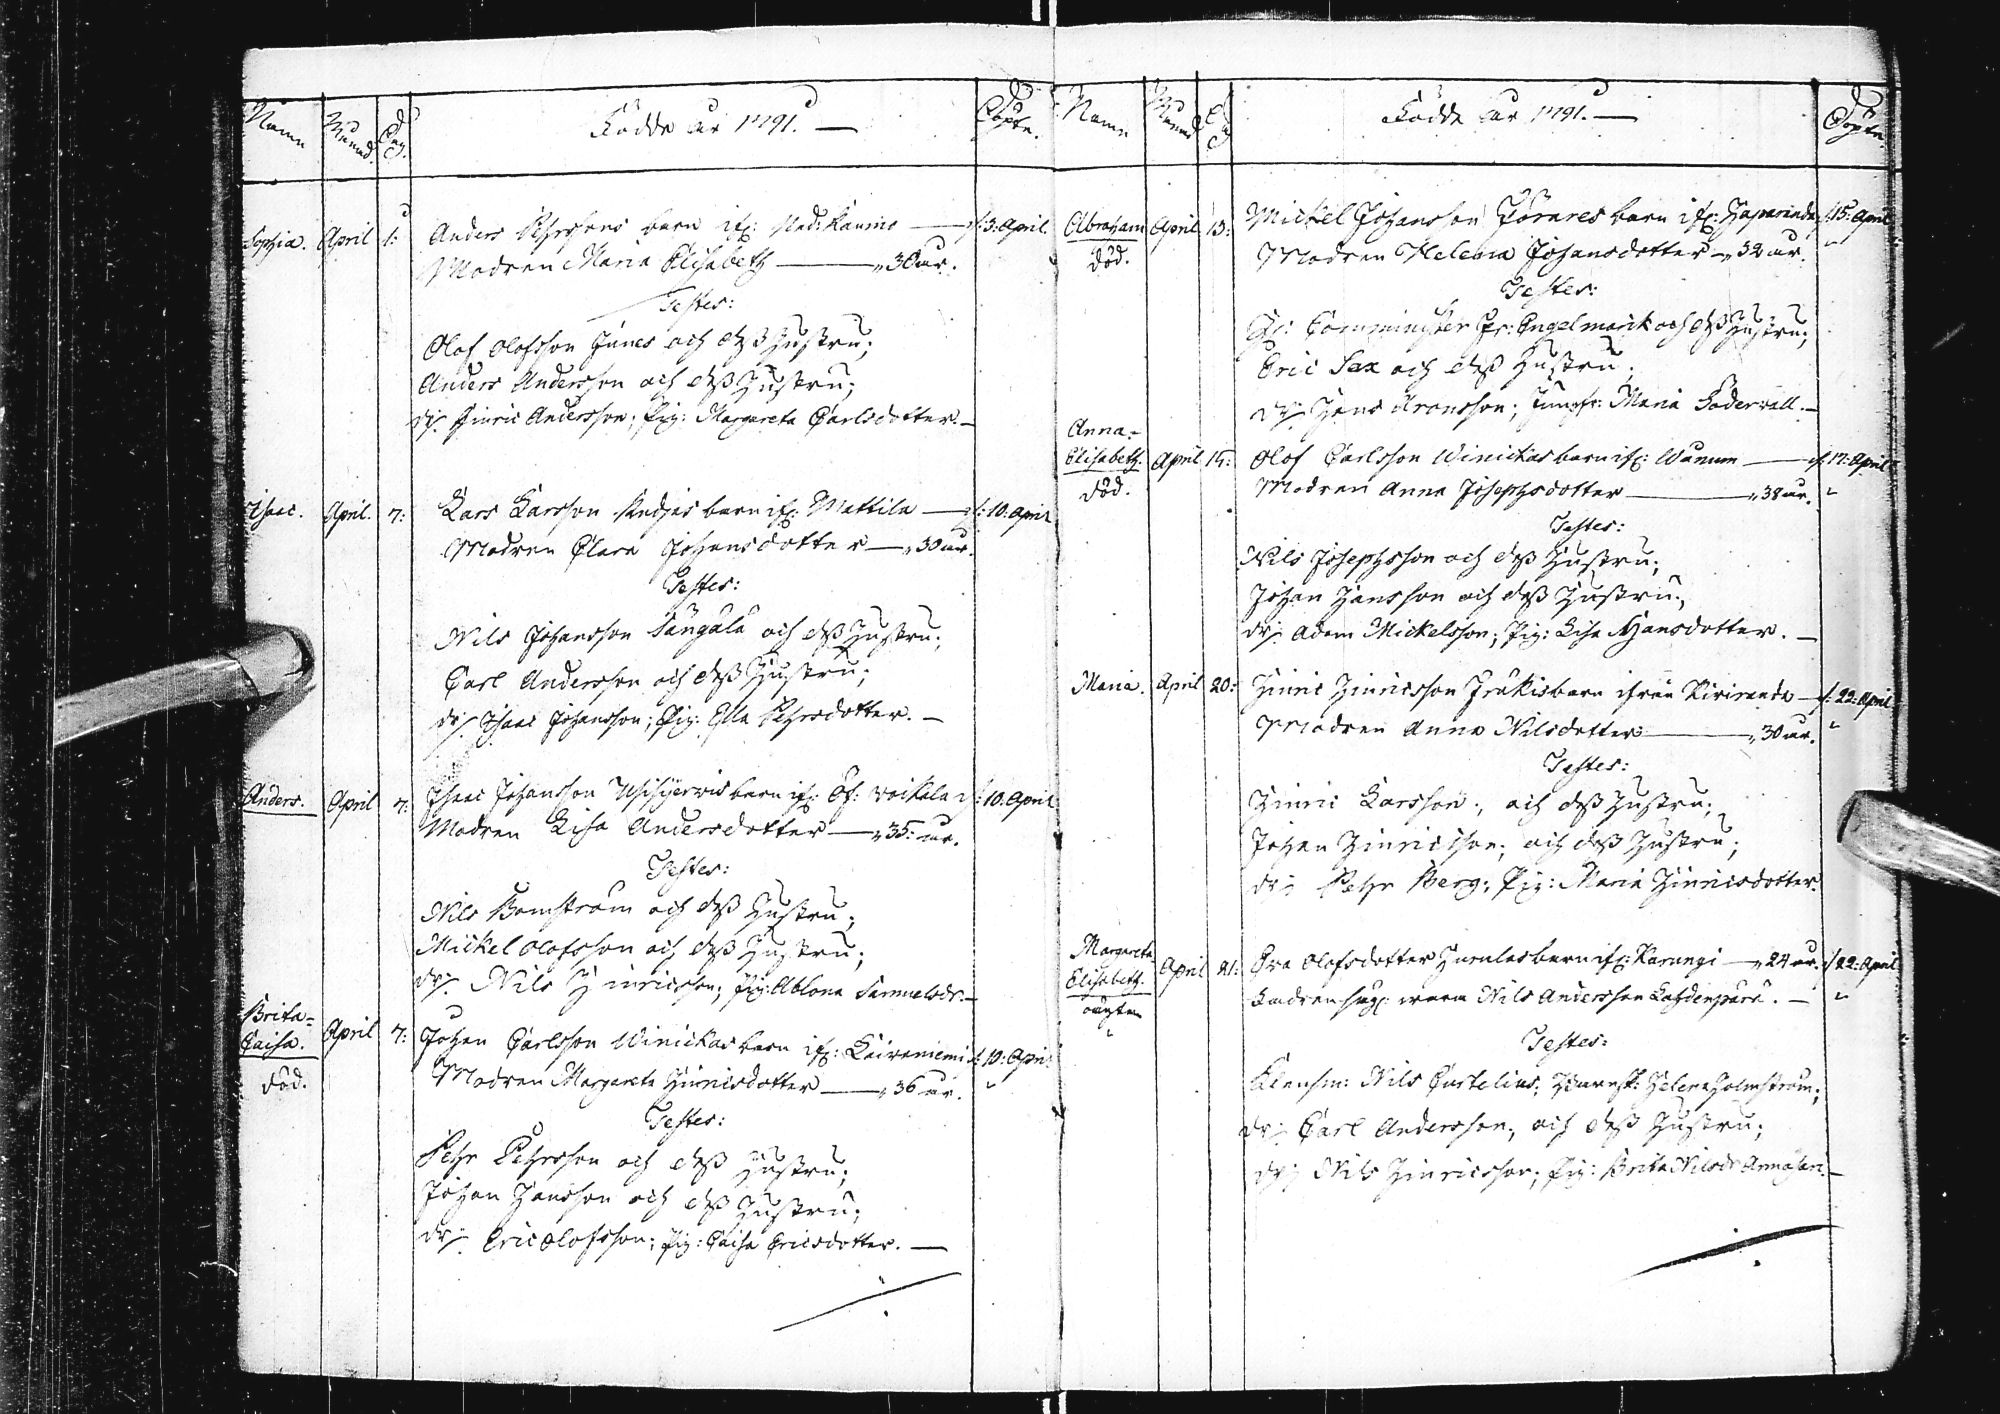 Namn Månad Dag. Födde År 1791. — Döpte.
Sophia. April 1: Anders Pehrssons barn ifr: Ned: Raumo — d: 3: April
Modren Maria Elisabeth — „ 30 år.
Testes:
Olof Olofsson Junes och dess Hustru;
Anders Andersson och dess Hustru;
dr: Hinric Andersson; Pig: Margareta Carlsdotter. —
Isaac. April. 7: Lars Larsson barn ifr: Mattila — d: 10: April
Modren Clara Johansdotter — „ 30 år.
Testes:
Nils Johansson Sangala och dess Hustru;
Carl Andersson och dess Hustru;
dr: Isaac Johansson; Pig: Ella Pehrsdotter. —
Anders. April 7: Isaac Johansson barn ifr: Öf: Woikala d: 10. April
Modren Lisa Andersdotter — „ 35: år.
Testes:
Nils Bomström och dess Hustru;
Mickel Olofsson och dess Hustru;
dr: Nils Hinricsson; Pig: Ablona Samuelsdr. —
Brita=
Caisa. April 7: Johan Carlsson Winickas barn ifr: Laivaniemi d: 10: April
död. Modren Margareta Hinricsdotter — „ 36 år. „
Testes:
Pehr Pehrsson och dess Hustru;
Johan Hansson och dess Hustru;
dr: Eric Olofsson; Pig: Caisa Ericsdotter. —
Namn Månad Dag Födde År 1791. — Döpte.
Abraham April 13: Mickel Johansson barn ifr: Haparanda d: 15: April
död. Modren Helena Johansdotter — „ 32 år. „
Testes:
Hr: Comminister Pr: Engelmarck och dess Hustru;
Eric Sax och dess Hustru;
dr: Hans Aronsson; Jungfr: Maria Söderwall. —
Anna=
Elisabeth. April 15: Olof Carlsson Winickas barn ifr: — d: 17: April
död. Modren Anna Josephsdotter — „ 38 år. „
Testes:
Nils Josephsson och dess Hustru;
Johan Hansson och dess Hustru;
dr: Adam Mickelsson; Pig: Lisa Hansdotter. —
Maria. April 20: Hinric Hinricsson barn ifrån Kiviranda — d: 22: April
Modren Anna Nilsdotter — „ 30 år. „
Testes:
Hinric Larsson; och dess Hustru;
Johan Hinricsson; och dess Hustru;
dr: Pehr Berg; Pig: Maria Hinricsdotter.
Margareta
Elisabeth. April 21: Eva Olofsdotter barn ifr: Karungi — „ 24 år. d: 22: April
oägta Fadren säg: wara Nils Andersson . — „
Testes:
Nils Curtelius; Helena Holmström;
dr: Carl Andersson; och dess Hustru;
dr: Nils Hinricsson; Pig: Brita Nilsdr —